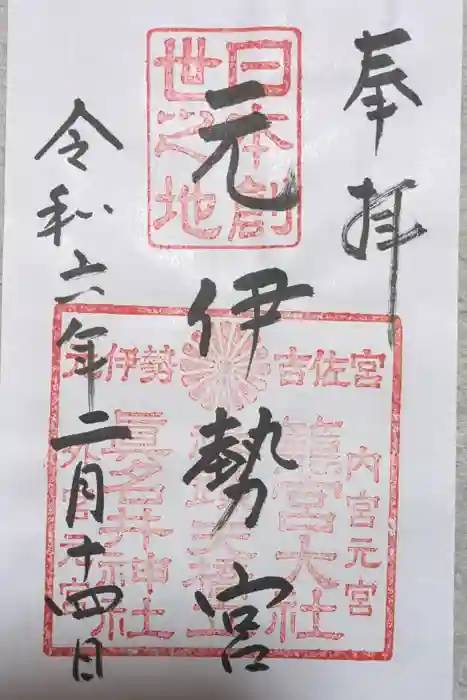 奉拝
日本創
世之地
元伊勢宮
令和六年二月十四日
吉佐宮
元伊勢
内宮元宮
籠宮大社
天橋立
眞名井神社
外宮元宮